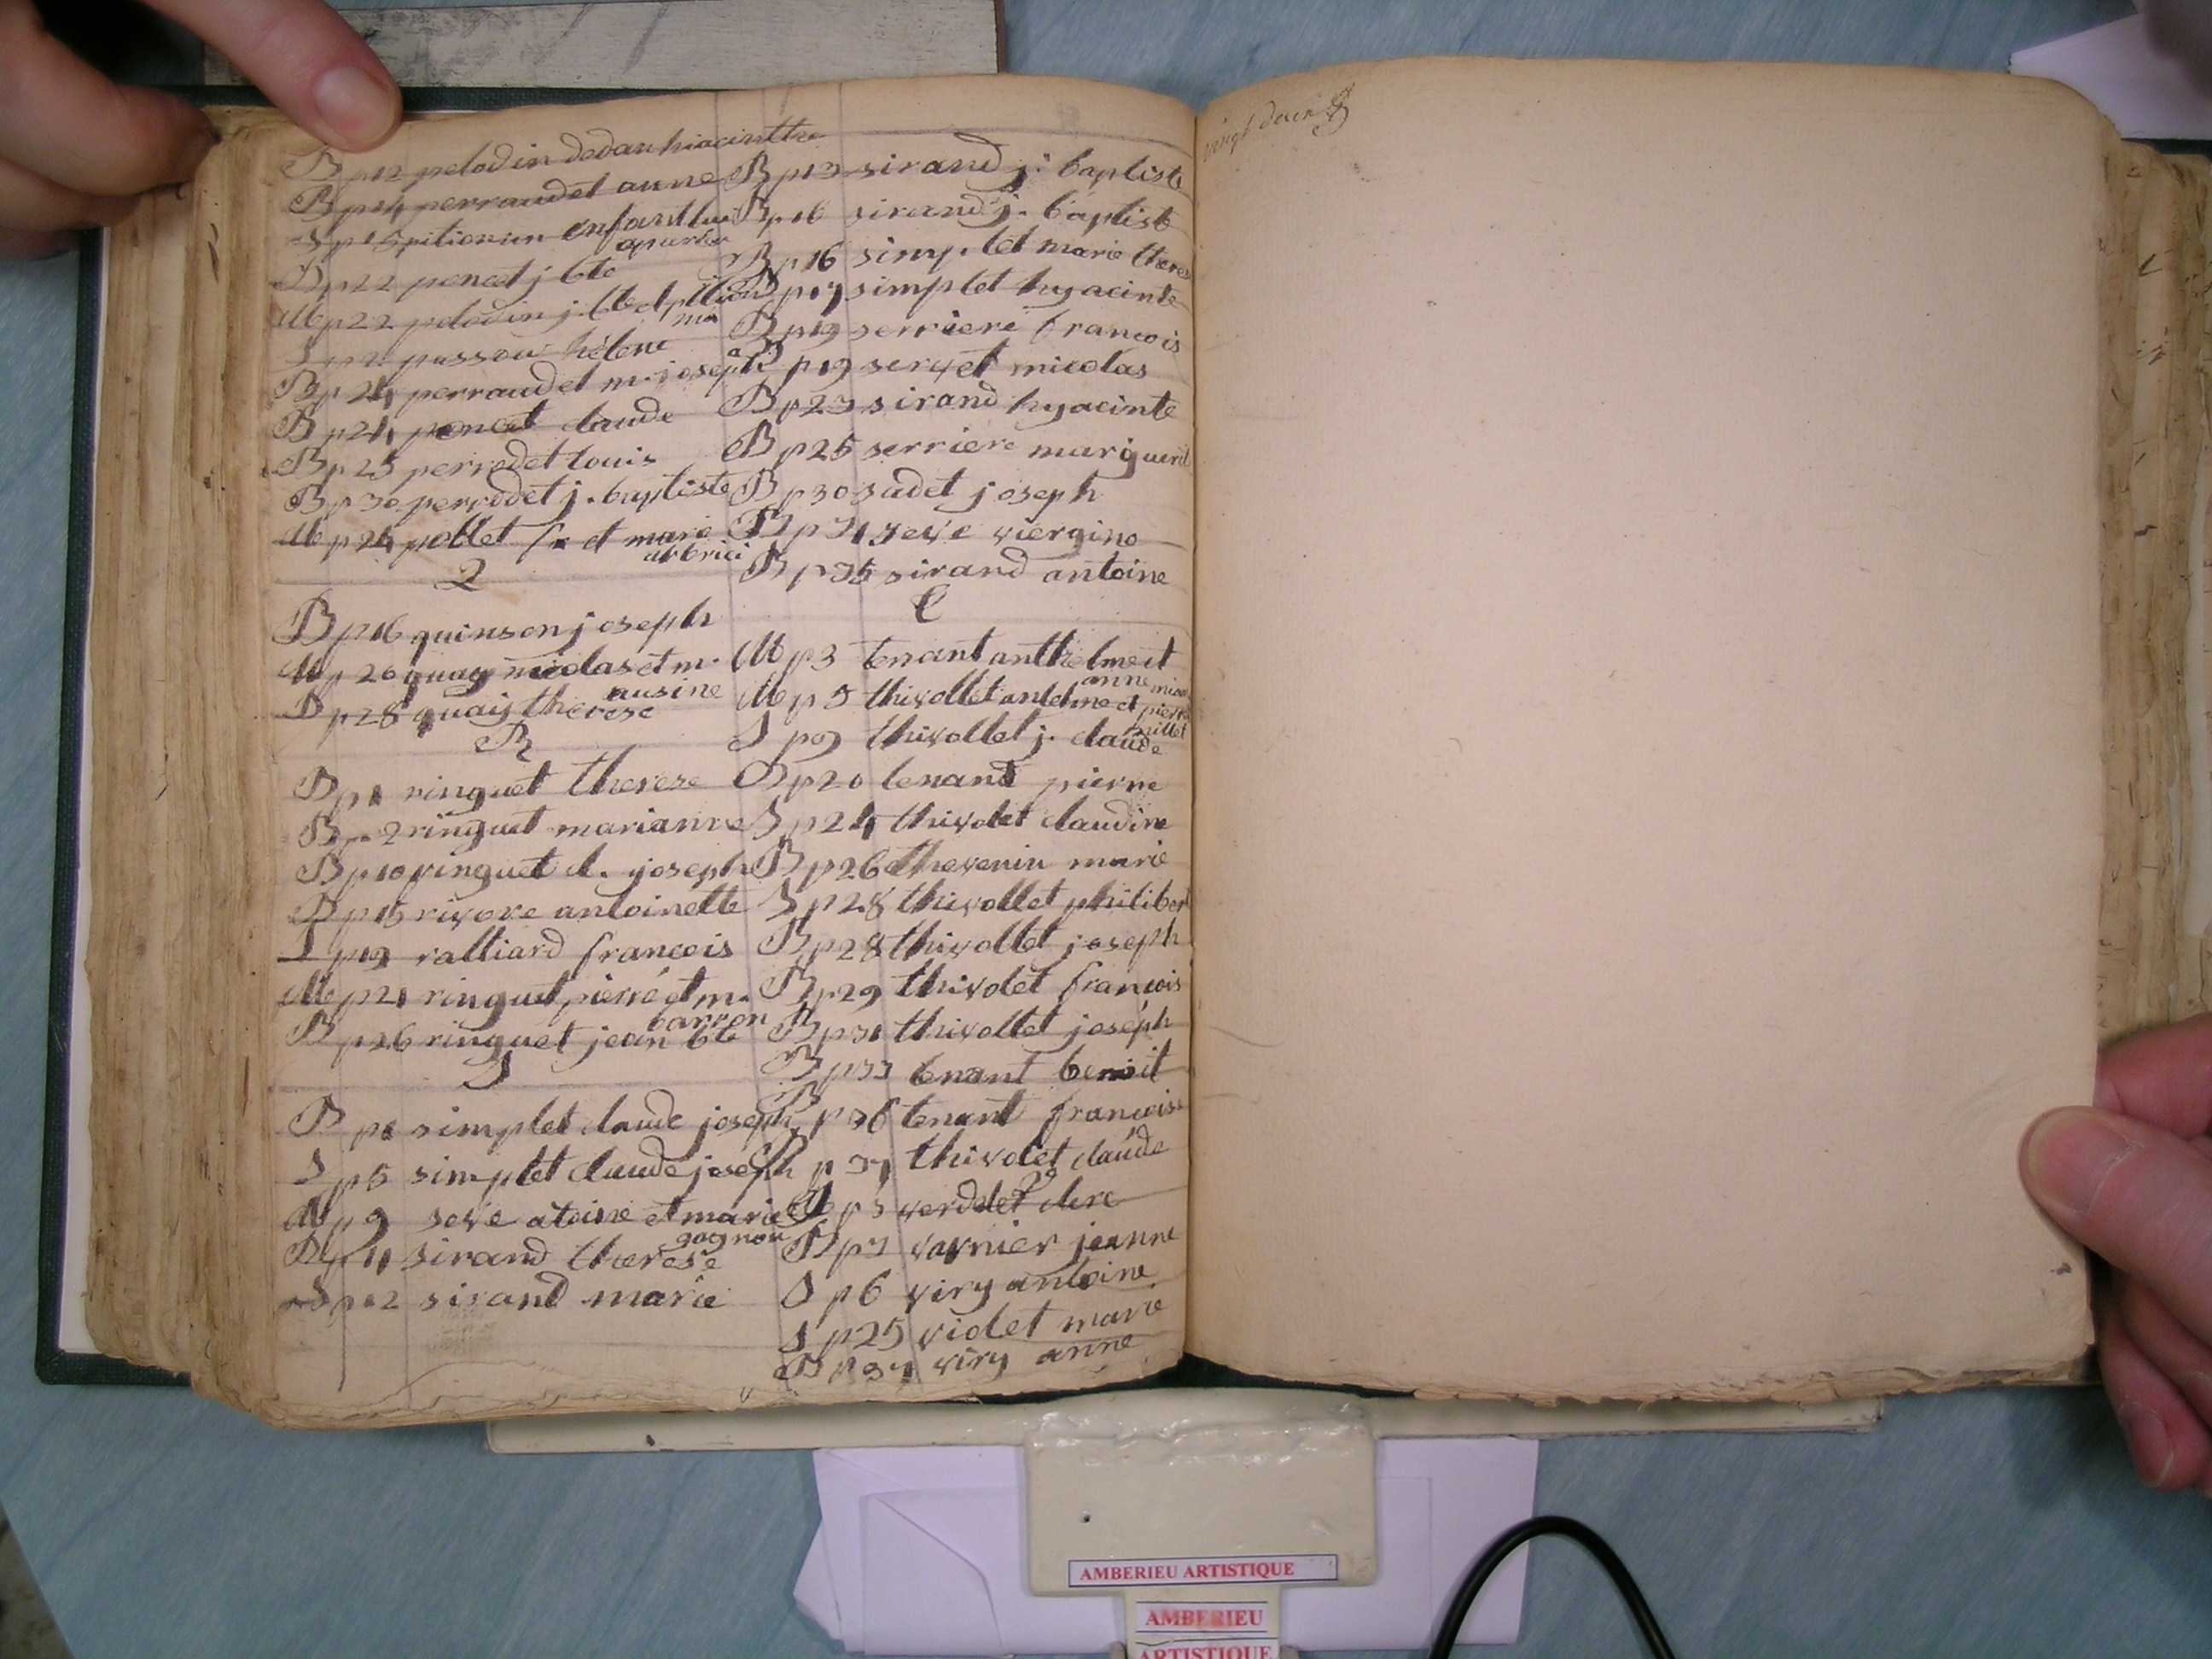 B p12 pelodin dedan hiacinthe
B p14 perraudet anne
S p15 pitionun enfant lui
apartien
B p22 poncet j bte
M p22 pelodin j. bte et
S p2 passou hélene
B p24 perraudet m. joseph
B p24 poncet claude
B p25 perrodet louis
B p30 perrodet j. baptiste
M p24 pollet fr et marie
Q
B p16 quinson joseph
M p26 quay nicolas et m.
ausine
B p28 quaij therese
R
B p1 ringuet therese
B p2 ringuet marianne
B p10 ringuet cl. joseph
B p15 rivore antoinette
S p19 ralliard francois
M p21 ringuet pierre et m.
barron
B p26 ringuet jean bte
S
B p1 simplet claude joseph
S p5 simplet claude joseph
M p9 seve atoine et marie
gagnon
B p11 sirand therese
S p12 sirand marie
B p13 sirand j. baptiste
B p16 sirand j. baptist
B p16 simplet marie theres
B p17 simplet hyacinte
B p19 serriere francois
B p19 servet nicolas
B p23 sirand hyacinte
B p25 serriere marguerit
B p30 sadet joseph
B p31 seve viergine
B p35 sirand antoine
t
M p3 tenant anthelme et
anne
M p5 thivollet antelme et pierr
millet
S p9 thivollet j. claude
B p20 tenand pierre
S p24 thivolet claudine
B p26 thevenin marie
S p28 thivollet philibert
B p28 thivollet joseph
B p29 thivolet francois
B p31 thivollet joseph
B p33 tenant benoit
B p36 tenant francois
B p37 thivolet claude
M p3 verdelet clere
B p7 varnier jeanne
S p6 viry antoine
S p25 violet marie
B p37 viry anne
vingt deux
AMBERIEU ARTISTIQUE
AMBERIEU
ARTISTIQUE